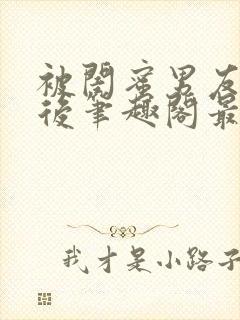 被闺蜜男友
后笔趣阁最
我才是小路子